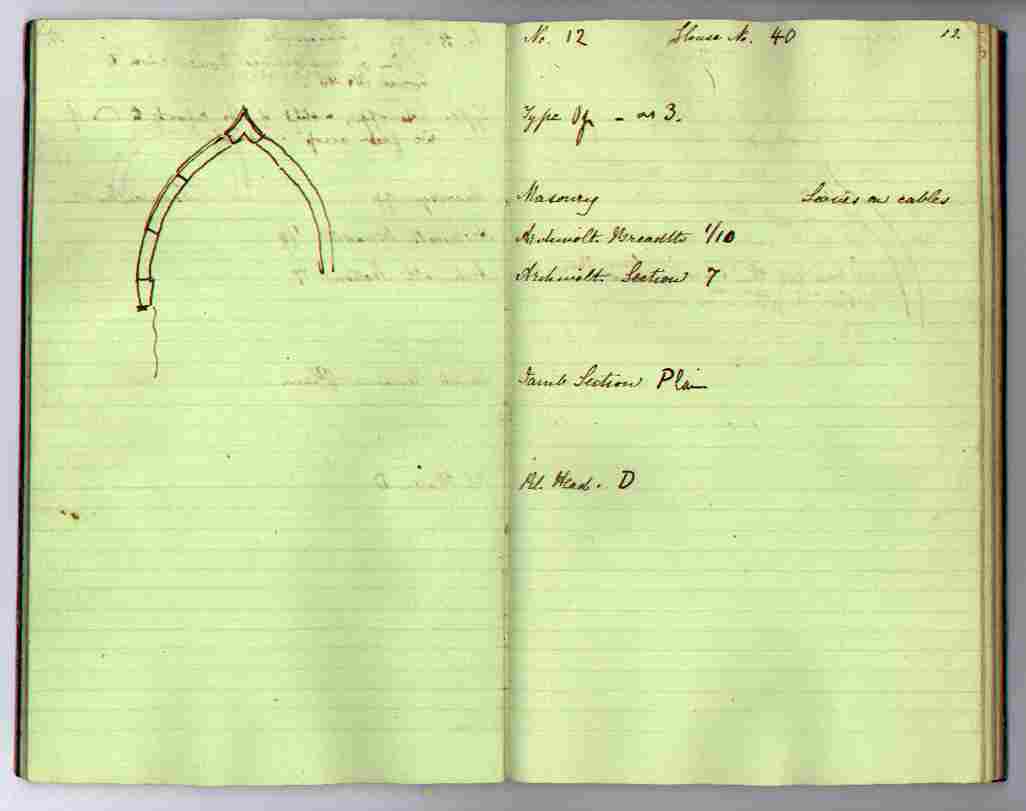 No. 12 House No. 40 12.
Type Of - as 3.
Masonry on cables
Archivolt. Breadth 1/10
Archivolt. Section 7
Jamb Section Plain
Pl. Head. D